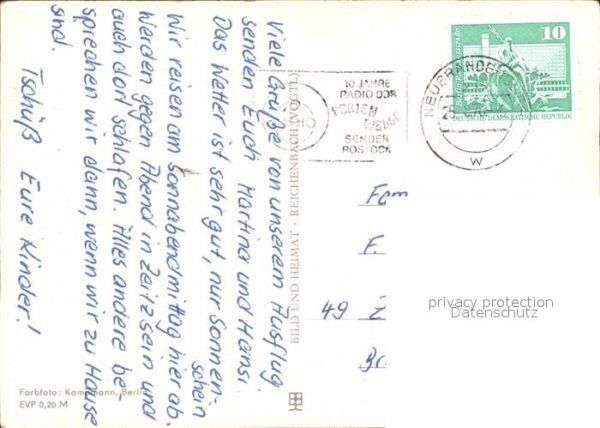 Viele Grüße von unserem Ausflug
senden Euch Martina und Hansi.
Das Wetter ist sehr gut, nur Sonnen-
schein
Wir reisen am Sonnabendmittag hier ab.
Werden gegen Abend in Zeitz sein und
auch dort schlafen. Alles andere be-
sprechen wir dann, wenn wir zu Hause
sind.
Tschüß Eure Kinder!
Farbfoto: Kampmann, Berlin
EVP 0,20 M
BILD UND HEIMAT · REICHENBACH (VOGTL)
10 JAHRE
RADIO DDR
FERIEN
WELLE
SENDER
ROSTOCK
NEUBRANDEN
25
w
10
DEUTSCHE DEMOKRATISCHE REPUBLIK
Fam
F.
49 Z
privacy protection
Datenschutz